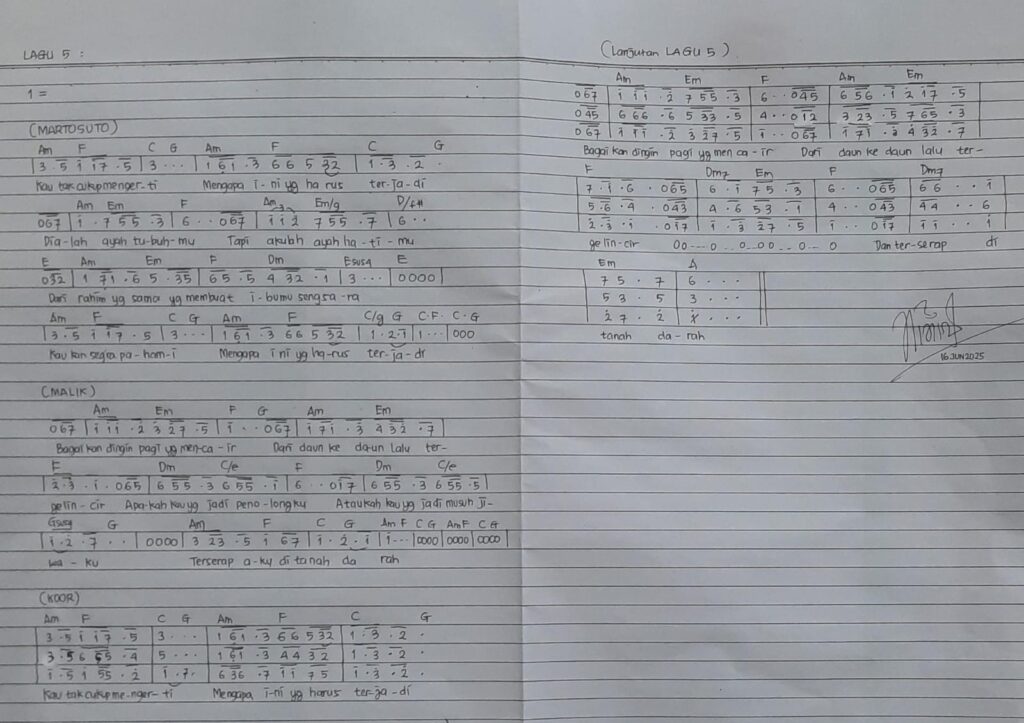 LAGU 5 :
1 =
(MARTOSUTO)
Am F C G Am F C G
| 3 . 5 i i 7 . 5 | 3 . . . | 1 6 1 . 3 6 6 5 3 2 | 1 . 3 . 2 .
Kau tak cukup menger-ti Mengapa i-ni yg ha rus ter-ja-di
Am Em F Am Em/g D/f#
0 6 7 | i . 7 5 5 . 3 | 6 . . 0 6 7 | i i 2 7 5 5 . 7 | 6 . .
Dia-lah ayah tu-buh-mu Tapi akulah ayah ha-ti-mu
E Am Em F Dm Esus4 E
0 3 2 | 1 7 1 . 6 5 . 3 5 | 6 5 . 5 4 3 2 . 1 | 3 . . . | 0 0 0 0 |
Dari rahim yg sama yg membuat i-bumu sengsa-ra
Am F C G Am F C/g G C.F. C.G
| 3 . 5 i i 7 . 5 | 3 . . . | 1 6 1 . 3 6 6 5 3 2 | 1 . 2 . 1 | 1 . . | 0 0 0
Kau kan segra pa-ham-i Mengapa i ni yg ha-rus ter-ja-di
(MALIK)
Am Em F G Am Em
0 6 7 | i i i . 2 3 2 7 . 5 | i . . 0 6 7 | i 7 i . 3 4 3 2 . 7 |
Bagai kan dingin pagi yg men-ca-ir Dari daun ke da-un lalu ter-
F Dm C/e F Dm C/e
| 2 . 3 . i . 0 6 5 | 6 5 5 . 3 6 5 5 . i | 6 . . 0 i 7 | 6 5 5 . 3 6 5 5 . 5 |
gelin-cir Apa-kah kau yg jadi peno-longku Ataukah kau yg jadi musuh ji-
Gsus4 G Am F C G Am F C G Am F C G
| i . 2 . 7 . . . | 0 0 0 0 | 3 2 3 . 5 i 6 7 | i . 2 . i | i . . . | 0 0 0 0 | 0 0 0 0 | 0 0 0 0 |
wa-ku Terserap a-ku di tanah da rah
(KOOR)
Am F C G Am F C G
| 3 . 5 i i 7 . 5 | 3 . . . | 1 6 1 . 3 6 6 5 3 2 | 1 . 3 . 2 .
| 3 . 5 6 6 5 . 4 | 5 . . . | 1 6 1 . 3 4 4 3 2 | 1 . 3 . 2 .
| i . 5 i 5 5 . 2 | i . 7 . | 6 3 6 . 7 i i 7 5 | i . 3 . 2 .
Kau tak cukup me-nger-ti Mengapa i-ni yg harus ter-ja-di
(Lanjutan LAGU 5)
Am Em F Am Em
0 6 7 | i i i . 2 7 5 5 . 3 | 6 . . 0 4 5 | 6 5 6 . i 2 i 7 . 5
0 4 5 | 6 6 6 . 6 5 3 3 . 5 | 4 . . 0 1 2 | 3 2 3 . 5 7 6 5 . 3
0 6 7 | i i i . 2 3 2 7 . 5 | i . . 0 6 7 | i 7 i . 3 4 3 2 . 7
Bagai kan dingin pagi yg men ca-ir Dari daun ke daun lalu ter-
F Dm7 Em F Dm7
| 7 . i . 6 . 0 6 5 | 6 . i 7 5 . 3 | 6 . . 0 6 5 | 6 6 . . i
| 5 . 6 . 4 . 0 4 3 | 4 . 6 5 3 . 1 | 4 . . 0 4 3 | 4 4 . . 6
| 2 . 3 . i . 0 i 7 | i . 3 2 7 . 5 | i . . 0 i 7 | i i . . i
gelin-cir Oo---o ..o-oo..o--o Dan ter-serap di
Em A
| 7 5 . 7 | 6 . . .
| 5 3 . 5 | 3 . . .
| 2 7 . 2 | i . . .
tanah da-rah
16 JUN 2025